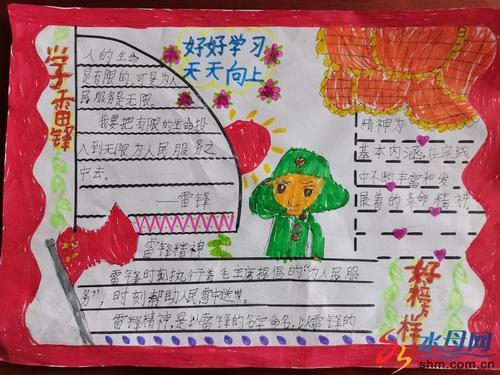 学雷锋
好好学习
天天向上
人的生命
是有限的，可是为人
民服务是无限
我要把有限的生命投
入到无限为人民服务之
中去。
——雷锋
精神为
基本内涵，在实践
中不断丰富和发
展着的革命精神
雷锋精神
雷锋时刻执行着毛主席提倡的“为人民服
务”，时刻帮助人民
雷锋精神，是以雷锋的名字命名，以雷锋的
好榜样
水母网
shm.com.cn